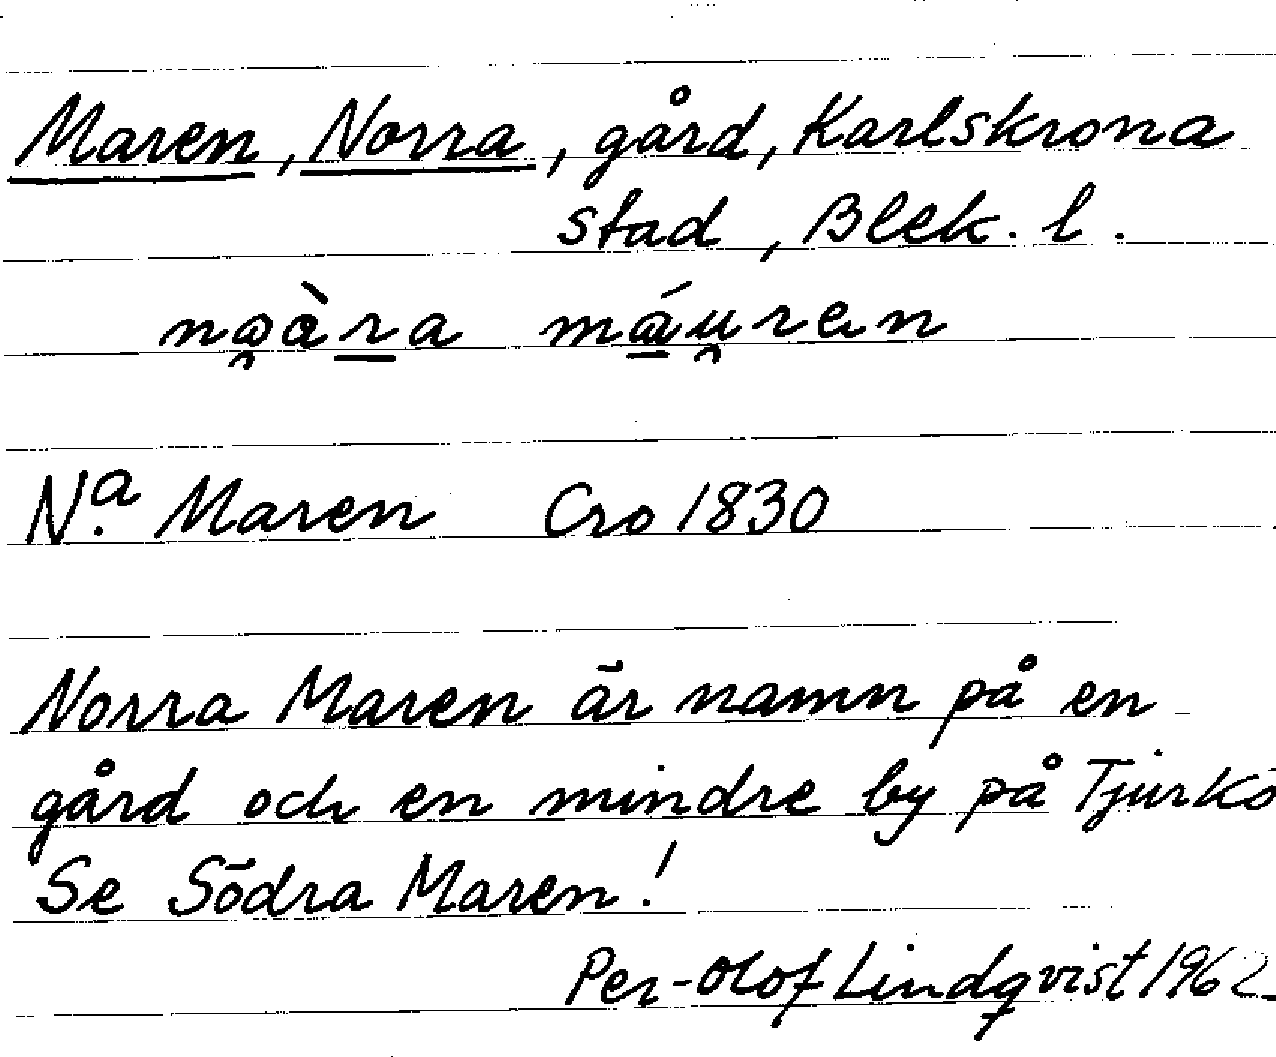 Maren, Norra, gård, Karlskrona
stad, Blek. l.
Nᵃ. Maren Cro 1830
Norra Maren är namn på en
gård och en mindre by på Tjurkö
Se Södra Maren!
Per-Olof Lindqvist 1962.